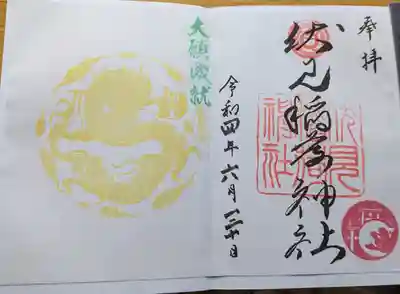 奉拝
伏見稲荷神社
伏見
稲荷
神社
令和四年六月三十日
大願成就